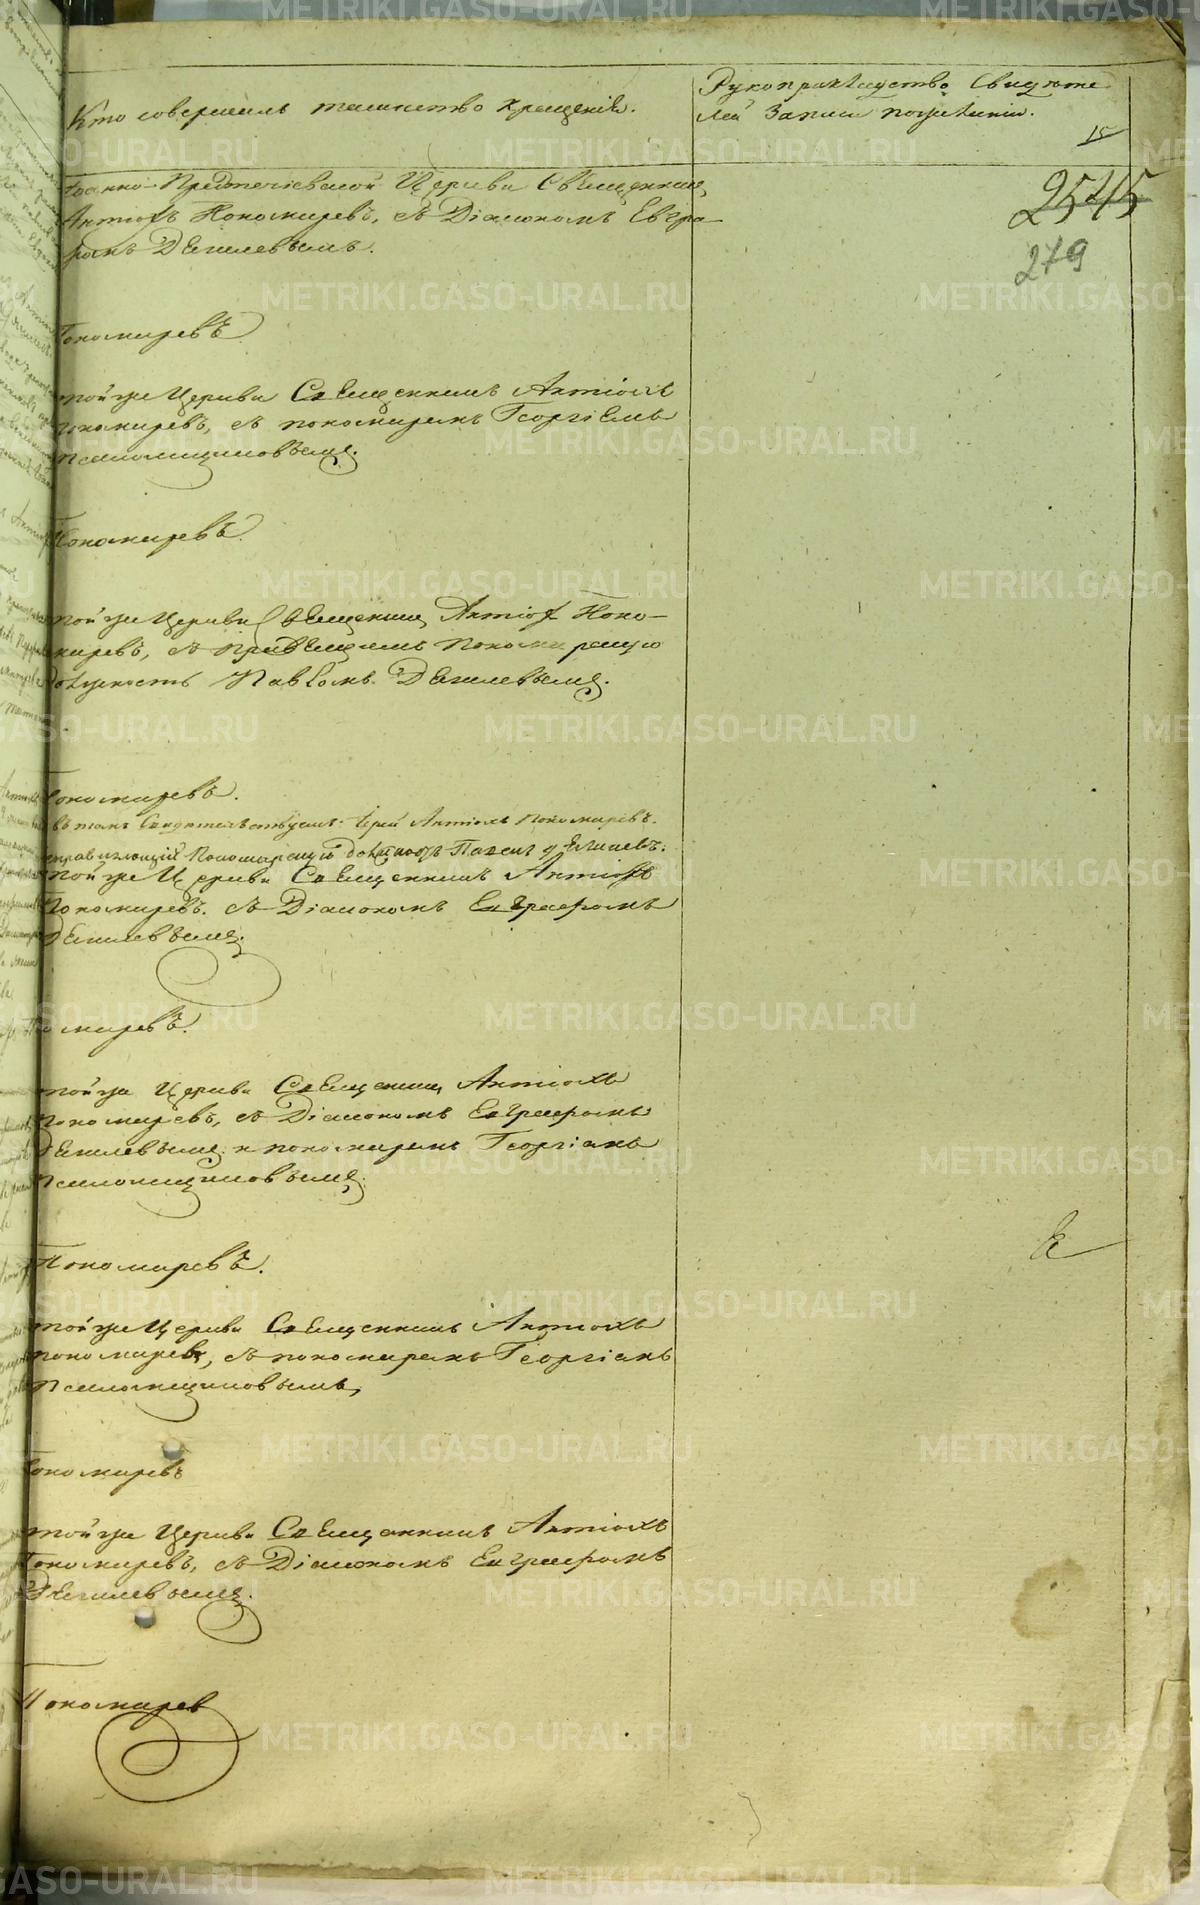 Кто совершалъ таинство крещенія.
Рукоприкладство Свидѣте
лей Записи по желанію.
15
2545
279
Іоанно-Предтечіевской Церкви Священникъ
Антіохъ Пономаревъ, съ Діакономъ Евгра
фомъ Дягилевымъ.
Пономаревъ
той же Церкви Священникъ Антіохъ
Пономаревъ, съ пономаремъ Георгіемъ
Псаломщиковымъ.
Пономаревъ.
той же Церкви Священникъ Антіохъ Поно-
маревъ, съ правящимъ пономарскую
должность Павломъ Дягилевымъ.
Пономаревъ.
въ томъ Свидѣтельствуемъ Іерей Антіохъ Пономаревъ.
исправляющій Пономарскую должность Павелъ Дягилевъ.
той же Церкви Священникъ Антіохъ
Пономаревъ. съ Діакономъ Евграфомъ
Дягилевымъ.
Пономаревъ.
той же Церкви Священникъ Антіохъ
Пономаревъ, съ Діакономъ Евграфомъ
Дягилевымъ и пономаремъ Георгіемъ
Псаломщиковымъ.
Пономаревъ.
той же Церкви Священникъ Антіохъ
пономаревъ, съ пономаремъ Георгіемъ
Псаломщиковымъ,
Пономаревъ
той же Церкви Священникъ Антіохъ
Пономаревъ, съ Діакономъ Евграфомъ
Дягилевымъ.
Пономарев
METRIKI.GASO-URAL.RU